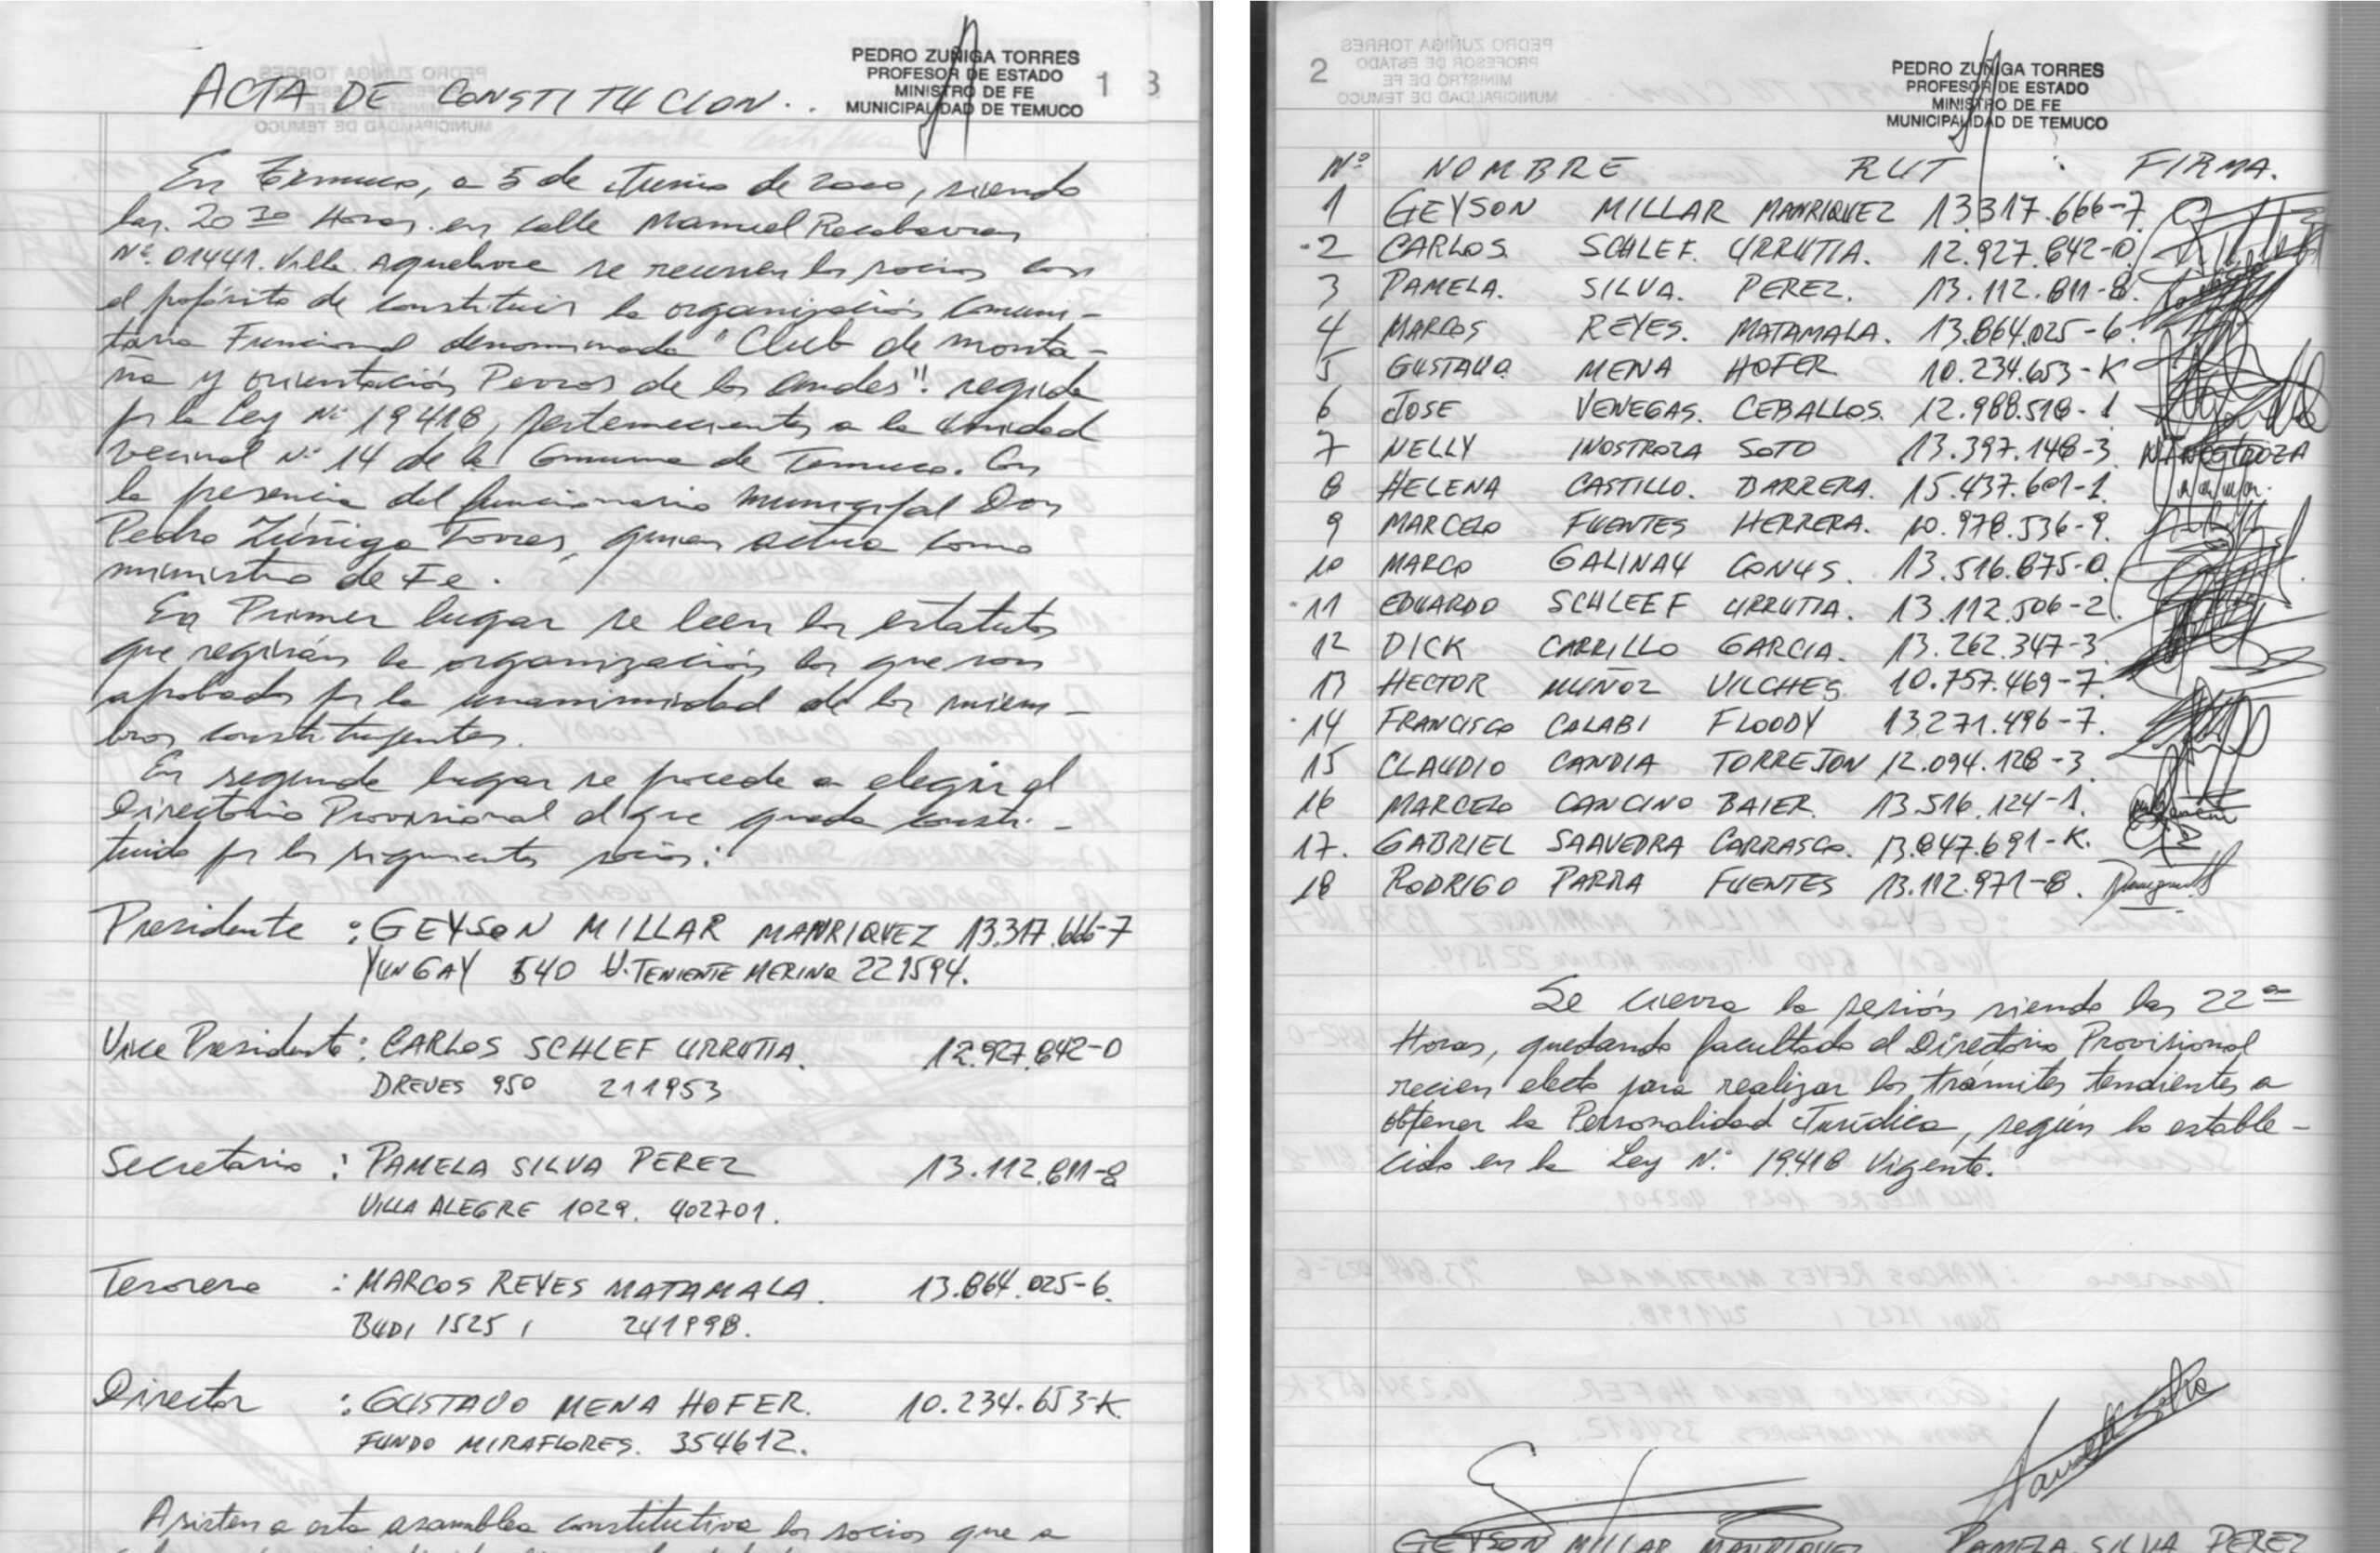 PEDRO ZUÑIGA TORRES
PROFESOR DE ESTADO
MINISTRO DE FE
MUNICIPALIDAD DE TEMUCO
1 3
ACTA DE CONSTITUCION..
En Temuco, a 5 de Junio de 2000, siendo
las 20 30 Horas en calle Manuel Recabarren
Nº 01441. Villa se reunen los socios con
el propósito de constituir la organización comuni-
taria Funcional denominada "Club de monta-
ña y orientación Perros de los Andes". regida
por la Ley Nº 19418, pertenecientes a la unidad
vecinal Nº 14 de la Comuna de Temuco. Con
la presencia del funcionario municipal Don
Pedro Zúñiga Torres, quien actúa como
ministro de Fe.
En Primer lugar se leen los estatutos
que regirán la organización los que son
aprobados por la unanimidad de los miem-
bros constituyentes.
En segundo lugar se procede a elegir el
Directorio Provisional el que queda consti-
tuido por los siguientes socios:
Presidente : GEYSON MILLAR MANRIQUEZ 13.317.666-7
YUNGAY 540 V. TENIENTE MERINO 221594.
Vice Presidente : CARLOS SCHLEF URRUTIA. 12.927.842-0
DREVES 950 211953
Secretario : PAMELA SILVA PEREZ 13.112.811-8
VILLA ALEGRE 1029. 402701.
Tesorero : MARCOS REYES MATAMALA. 13.864.025-6.
BUDI 1525, 241998.
Director : GUSTAVO MENA HOFER. 10.234.653-K
FUNDO MIRAFLORES. 354612.
Asisten a esta asamblea constitutiva los socios que a
2
PEDRO ZUÑIGA TORRES
PROFESOR DE ESTADO
MINISTRO DE FE
MUNICIPALIDAD DE TEMUCO
Nº NOMBRE RUT : FIRMA.
1 GEYSON MILLAR MANRIQUEZ 13.317.666-7
2 CARLOS SCHLEF. URRUTIA. 12.927.842-0
3 PAMELA. SILVA. PEREZ. 13.112.811-8.
4 MARCOS REYES. MATAMALA. 13.864.025-6
5 GUSTAVO MENA HOFER 10.234.653-K
6 JOSE VENEGAS. CEBALLOS. 12.988.518-1
7 NELLY INOSTROZA SOTO 13.397.148-3
8 HELENA CASTILLO. BARRERA. 15.437.601-1
9 MARCELO FUENTES HERRERA. 10.978.536-9.
10 MARCO GALINAY CONUS. 13.516.875-0
11 EDUARDO SCHLEEF URRUTIA. 13.112.506-2
12 DICK CARRILLO GARCIA. 13.262.347-3
13 HECTOR MUÑOZ VILCHES 10.757.469-7.
14 FRANCISCO CALABI FLOODY 13.271.496-7.
15 CLAUDIO CANDIA TORREJON 12.094.128-3
16 MARCELO CANCINO BAIER 13.516.124-1.
17. GABRIEL SAAVEDRA CARRASCO. 13.847.691-K.
18 RODRIGO PARRA FUENTES 13.112.971-8.
Se cierra la sesión siendo las 22 00
Horas, quedando facultado el Directorio Provisional
recien electo para realizar los trámites tendientes a
obtener la Personalidad Jurídica, según lo estable-
cido en la Ley Nº 19418 Vigente.
GEYSON MILLAR MANRIQUEZ PAMELA SILVA PEREZ